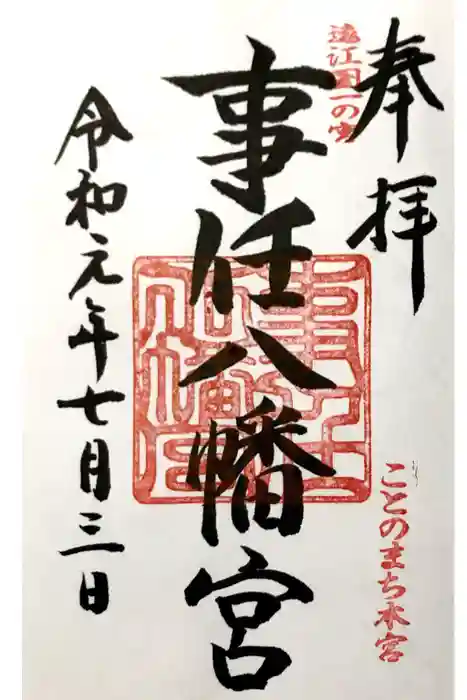 奉拝
遠江国一の宮
ことのまち本宮
事任八幡宮
令和元年七月三日